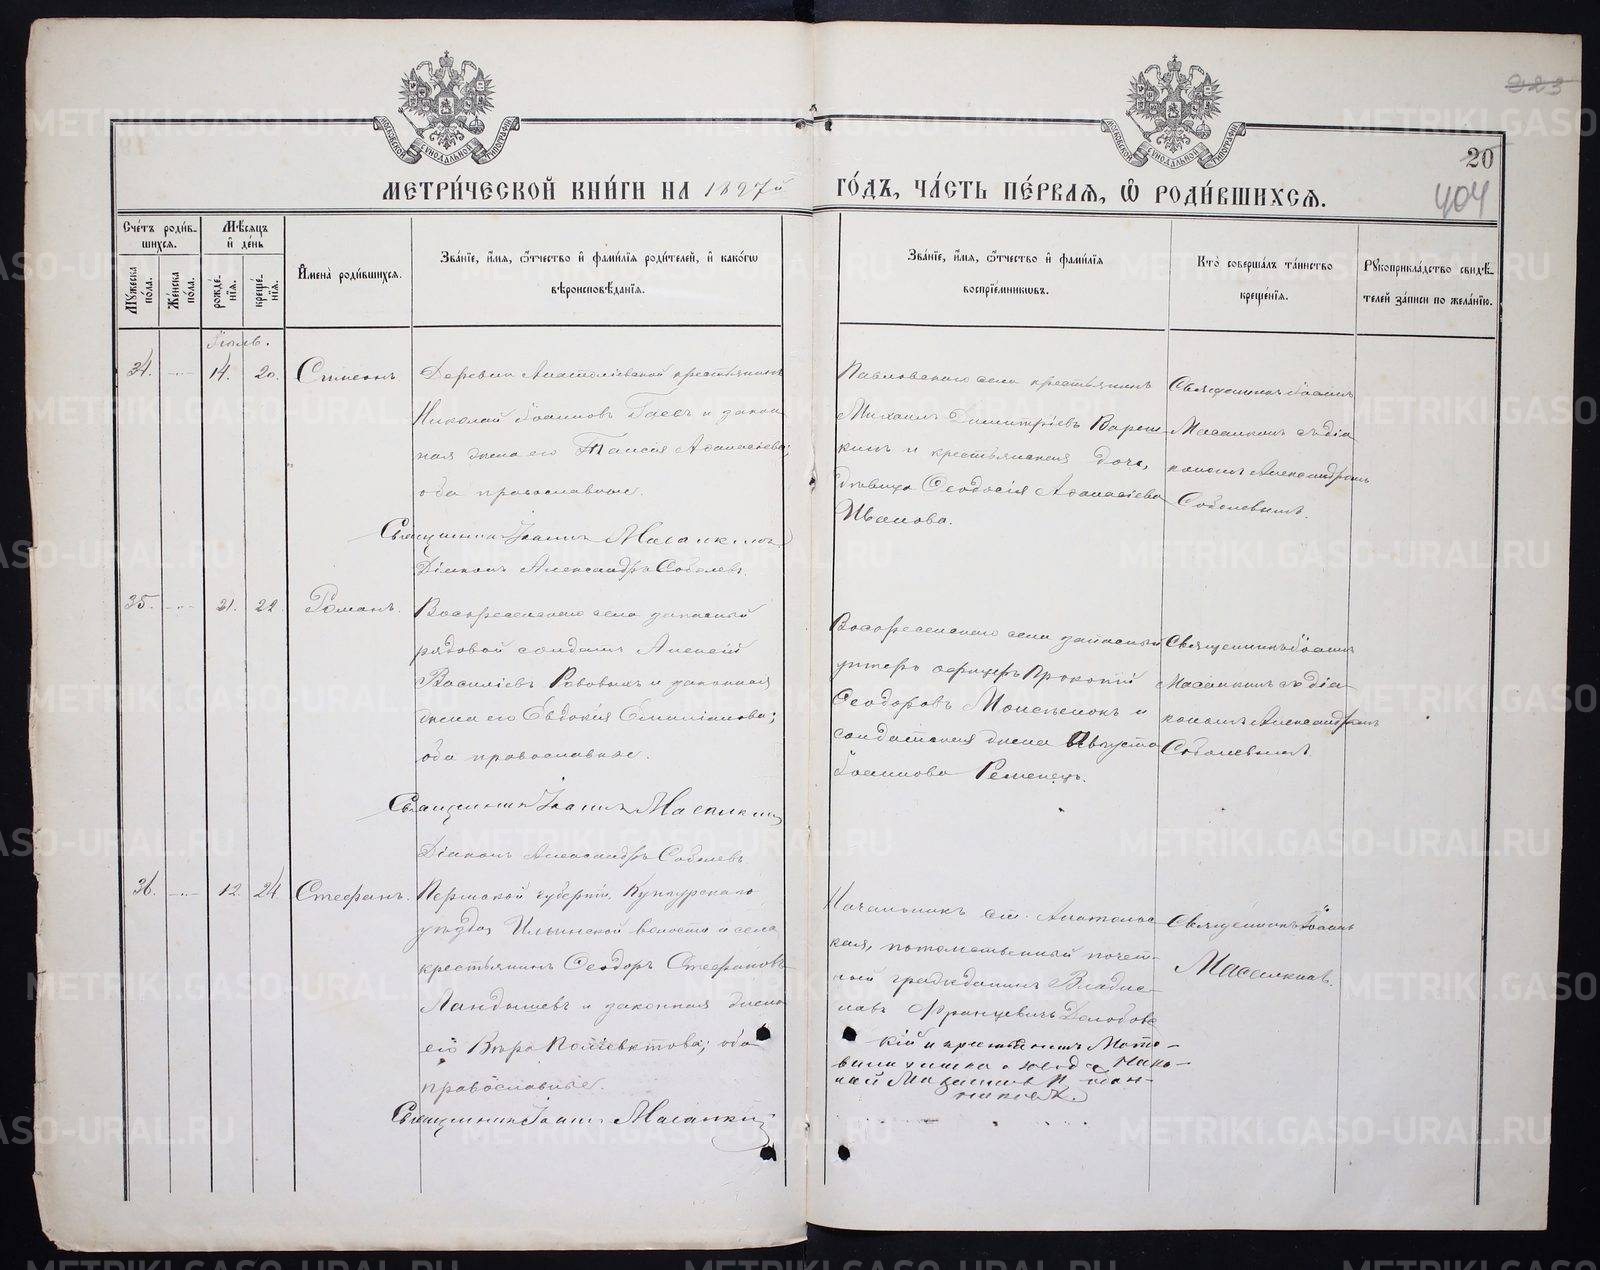 МОСКОВСКОЙ СУНОДАЛЬНОЙ ТИПОГРАФІИ
МОСКОВСКОЙ СУНОДАЛЬНОЙ ТИПОГРАФІИ
223
20
404
МЕТРИ́ЧЕСКОЙ КНИ́ГИ НА 1897й
ГО́ДЪ, ЧА́СТЬ ПЕ́РВАЯ, Ѡ РОДИ́ВШИХСЯ.
Сче́тъ роди́в-
шихся.
Му́жеска по́ла.
Же́нска по́ла.
Мѣ́сяцъ
и де́нь
рожде́-
нїя.
креще́-
нїя.
Имена̀ роди́вшихся.
Зва́нїе, и́мя, ѻ́тчество и фами́лїя роди́телей, и како́гѡ
вѣроисповѣ́данїя.
Зва́нїе, и́мя, ѻ́тчество и фами́лїя
воспрїе́мникѡвъ.
Кто̀ соверша́лъ та́инство
креще́нїя.
Рꙋкоприкла́дство свидѣ́-
телей за́писи по жела́нїю.
Іюль.
34. 14. 20. Симеонъ.
Деревни Анатоліевской крестьянинъ
Николай Іоанновъ Гаевъ и закон
ная жена его Таисія Аѳанасіева;
оба православные.
Священникъ Іоаннъ Масалкинъ
Діаконъ Александръ Соболевъ
Павловскаго села крестьянинъ
Михаилъ Димитріевъ
и крестьянская дочь,
дѣвица Ѳеодосія Аѳанасіева
Иванова.
Священникъ Іоаннъ
Масалкинъ съ діа
кономъ Александромъ
Соболевымъ.
35. 21. 22. Романъ.
Воскресенскаго села запасный
рядовой солдатъ Алексій
Василіевъ и законная
жена его Евдокія Емиліанова;
оба православные.
Священникъ Іоаннъ Масалкин
Діаконъ Александръ Соболевъ
Воскресенскаго села запасный
унтеръ офицеръ Прокопій
Ѳеодоровъ и
солдатская жена Августа
Іоаннова
Священникъ Іоаннъ
Масалкинъ съ діа
кономъ Александромъ
Соболевымъ.
36. 12. 24. Стефанъ.
Пермской губерніи, Кунгурскаго
уѣзда, Ильинской волости и села
крестьянинъ Ѳеодоръ Стефановъ
Ландышевъ и законная жена
его Вѣра Поліевктова; оба
православные.
Священникъ Іоаннъ Масалкин
Начальникъ ст. Анатольс
кая, потомственный почет-
ный гражданинъ Владис
лавъ Францевичъ
кій и крестьянинъ Мото-
вилихинскаго завода Нико-
лай
Священникъ Іоаннъ
Масалкинъ.
METRIKI.GASO-URAL.RU